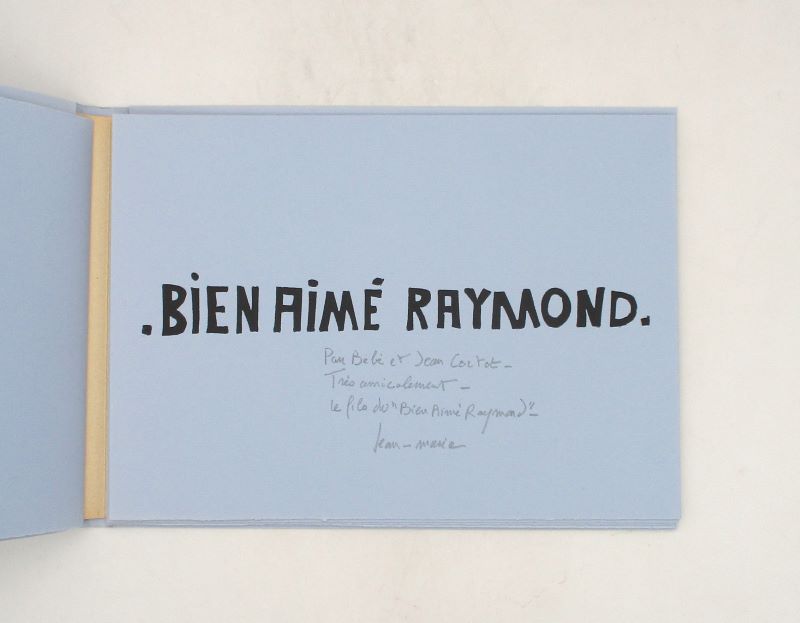 .BiEN AiMÉ RAYMOND.
Pour Bébé et Jean Cortot –
Très amicalement –
le fils du "Bien Aimé Raymond" –
Jean-Marie